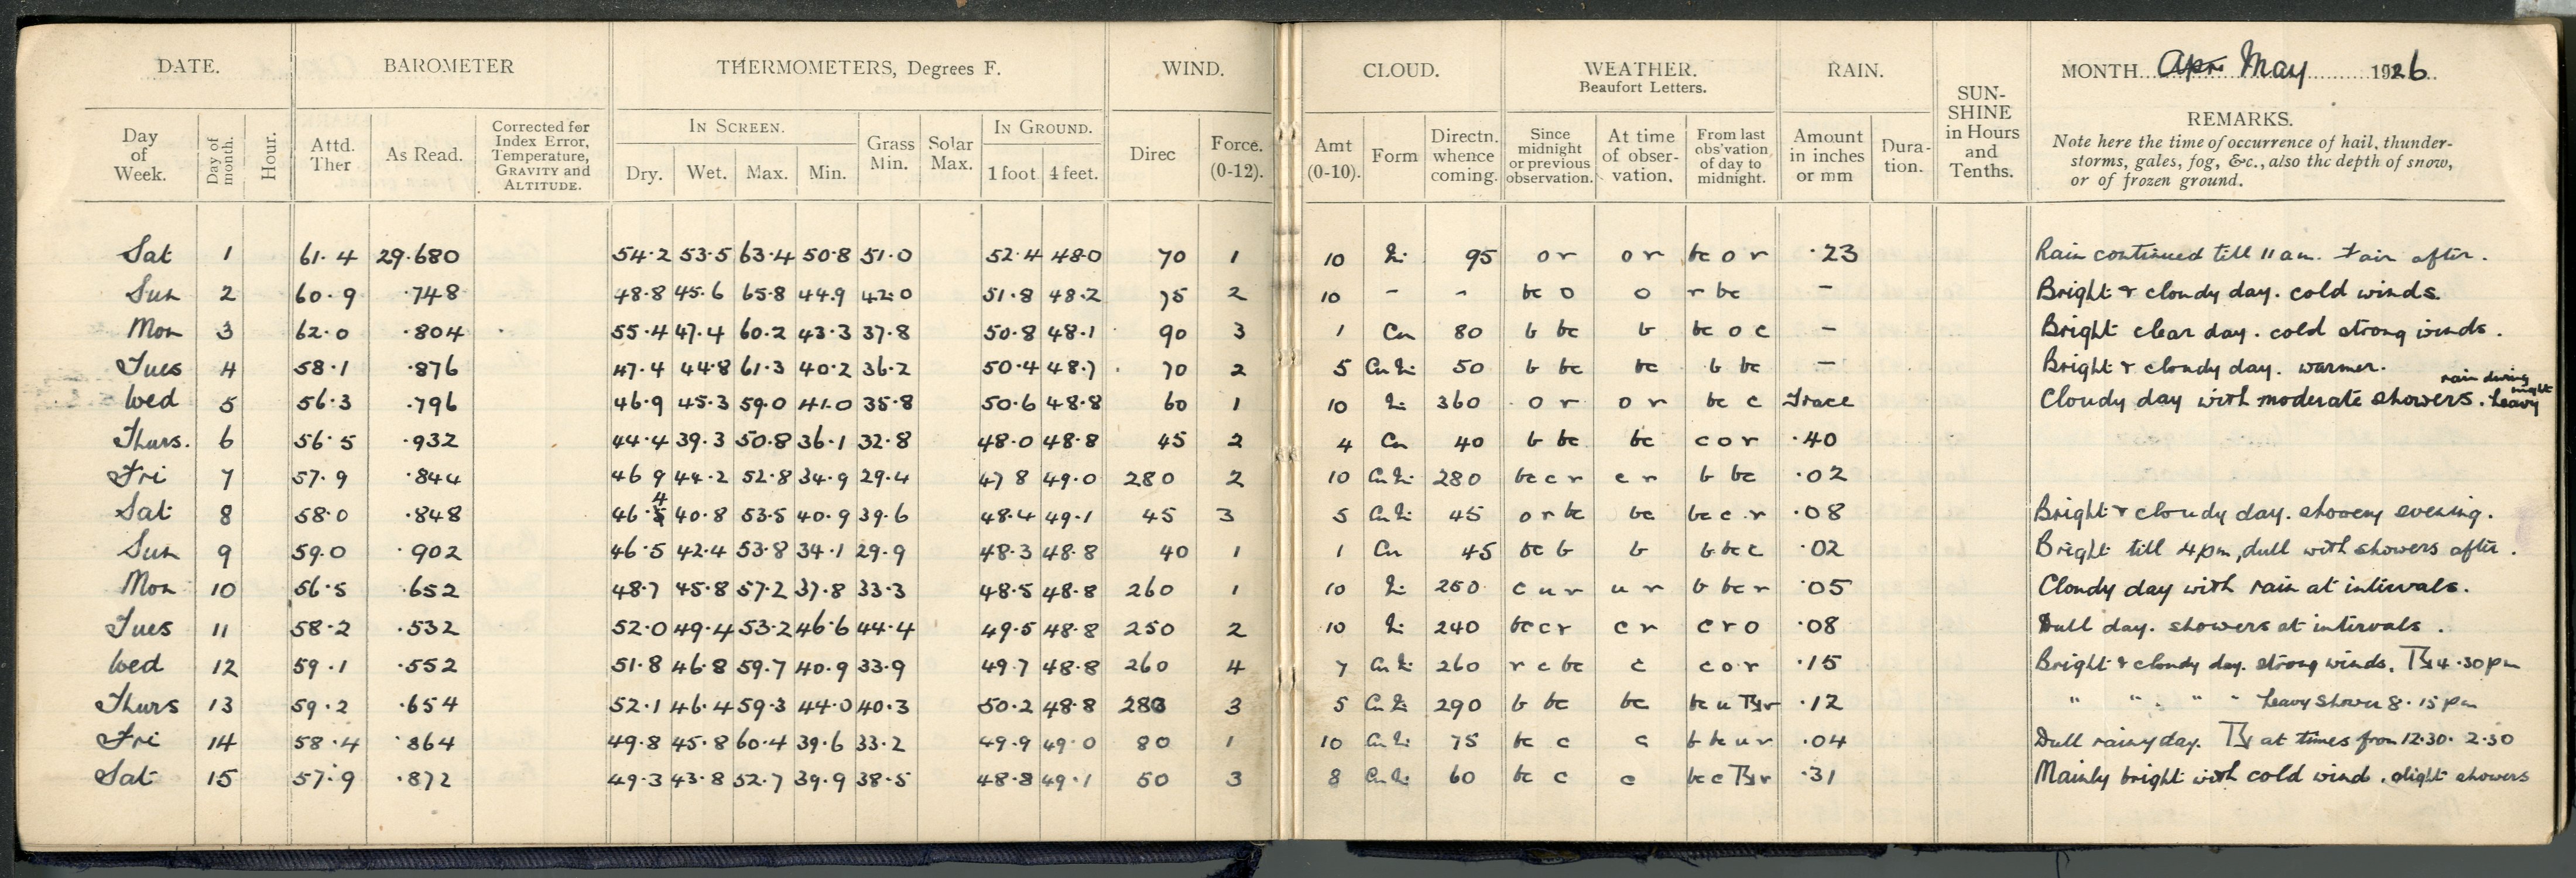 DATE. BAROMETER THERMOMETERS, Degrees F. WIND. CLOUD. WEATHER. Beaufort Letters. RAIN. SUN-SHINE in Hours and Tenths. MONTH Apr May 1926
Day of Week. Day of month. Hour. Attd. Ther As Read. Corrected for Index Error, Temperature, GRAVITY and ALTITUDE. IN SCREEN. Dry. Wet. Max. Min. Grass Min. Solar Max. IN GROUND. 1 foot 4 feet. Direc Force. (0-12). Amt (0-10). Form Directn. whence coming. Since midnight or previous observation. At time of observation. From last obs'vation of day to midnight. Amount in inches or mm Duration. REMARKS.
Note here the time of occurrence of hail, thunder-
storms, gales, fog, &c., also the depth of snow,
or of frozen ground.
Sat 1 61.4 29.680 54.2 53.5 63.4 50.8 51.0 52.4 48.0 70 1 10 95 o r o r bc o r .23 Rain continued till 11 am. Fair after.
Sun 2 60.9 .748 48.8 45.6 65.8 44.9 42.0 51.8 48.2 75 2 10 - - bc o o r bc - Bright & cloudy day. cold winds.
Mon 3 62.0 .804 55.4 47.4 60.2 43.3 37.8 50.8 48.1 90 3 1 Cu 80 b bc b bc o c - Bright clear day. cold strong winds.
Tues 4 58.1 .876 47.4 44.8 61.3 40.2 36.2 50.4 48.7 70 2 5 50 b bc bc b bc - Bright & cloudy day. warmer.
Wed 5 56.3 .796 46.9 45.3 59.0 41.0 35.8 50.6 48.8 60 1 10 360 o r o r bc c Trace Cloudy day with moderate showers. heavy rain during night
Thurs. 6 56.5 .932 44.4 39.3 50.8 36.1 32.8 48.0 48.8 45 2 4 Cu 40 b bc bc c o r .40
Fri 7 57.9 .844 46 9 44.2 52.8 34.9 29.4 47 8 49.0 280 2 10 280 bc c r c r b bc .02
Sat 8 58.0 .848 46.4 40.8 53.5 40.9 39.6 48.4 49.1 45 3 5 45 o r bc bc bc c r .08 Bright & cloudy day. showery evening.
Sun 9 59.0 .902 46.5 42.4 53.8 34.1 29.9 48.3 48.8 40 1 1 Cu 45 bc b b b bc c .02 Bright till 4pm, dull with showers after.
Mon 10 56.5 .652 48.7 45.8 57.2 37.8 33.3 48.5 48.8 260 1 10 250 c u r u r b bc r .05 Cloudy day with rain at intervals.
Tues 11 58.2 .532 52.0 49.4 53.2 46.6 44.4 49.5 48.8 250 2 10 240 bc c r c r c r o .08 Dull day. showers at intervals.
Wed 12 59.1 .552 51.8 46.8 59.7 40.9 33.9 49.7 48.8 260 4 7 260 r c bc c c o r .15 Bright & cloudy day. strong winds. 4.30pm
Thurs 13 59.2 .654 52.1 46.4 59.3 44.0 40.3 50.2 48.8 280 3 5 290 b bc bc bc u r .12 " " " " heavy shower 8.15pm
Fri 14 58.4 .864 49.8 45.8 60.4 39.6 33.2 49.9 49.0 80 1 10 75 bc c c b bc u r .04 Dull rainy day. at times from 12.30. 2.30
Sat 15 57.9 .872 49.3 43.8 52.7 39.9 38.5 48.8 49.1 50 3 8 60 bc c c bc c r .31 Mainly bright with cold wind. slight showers